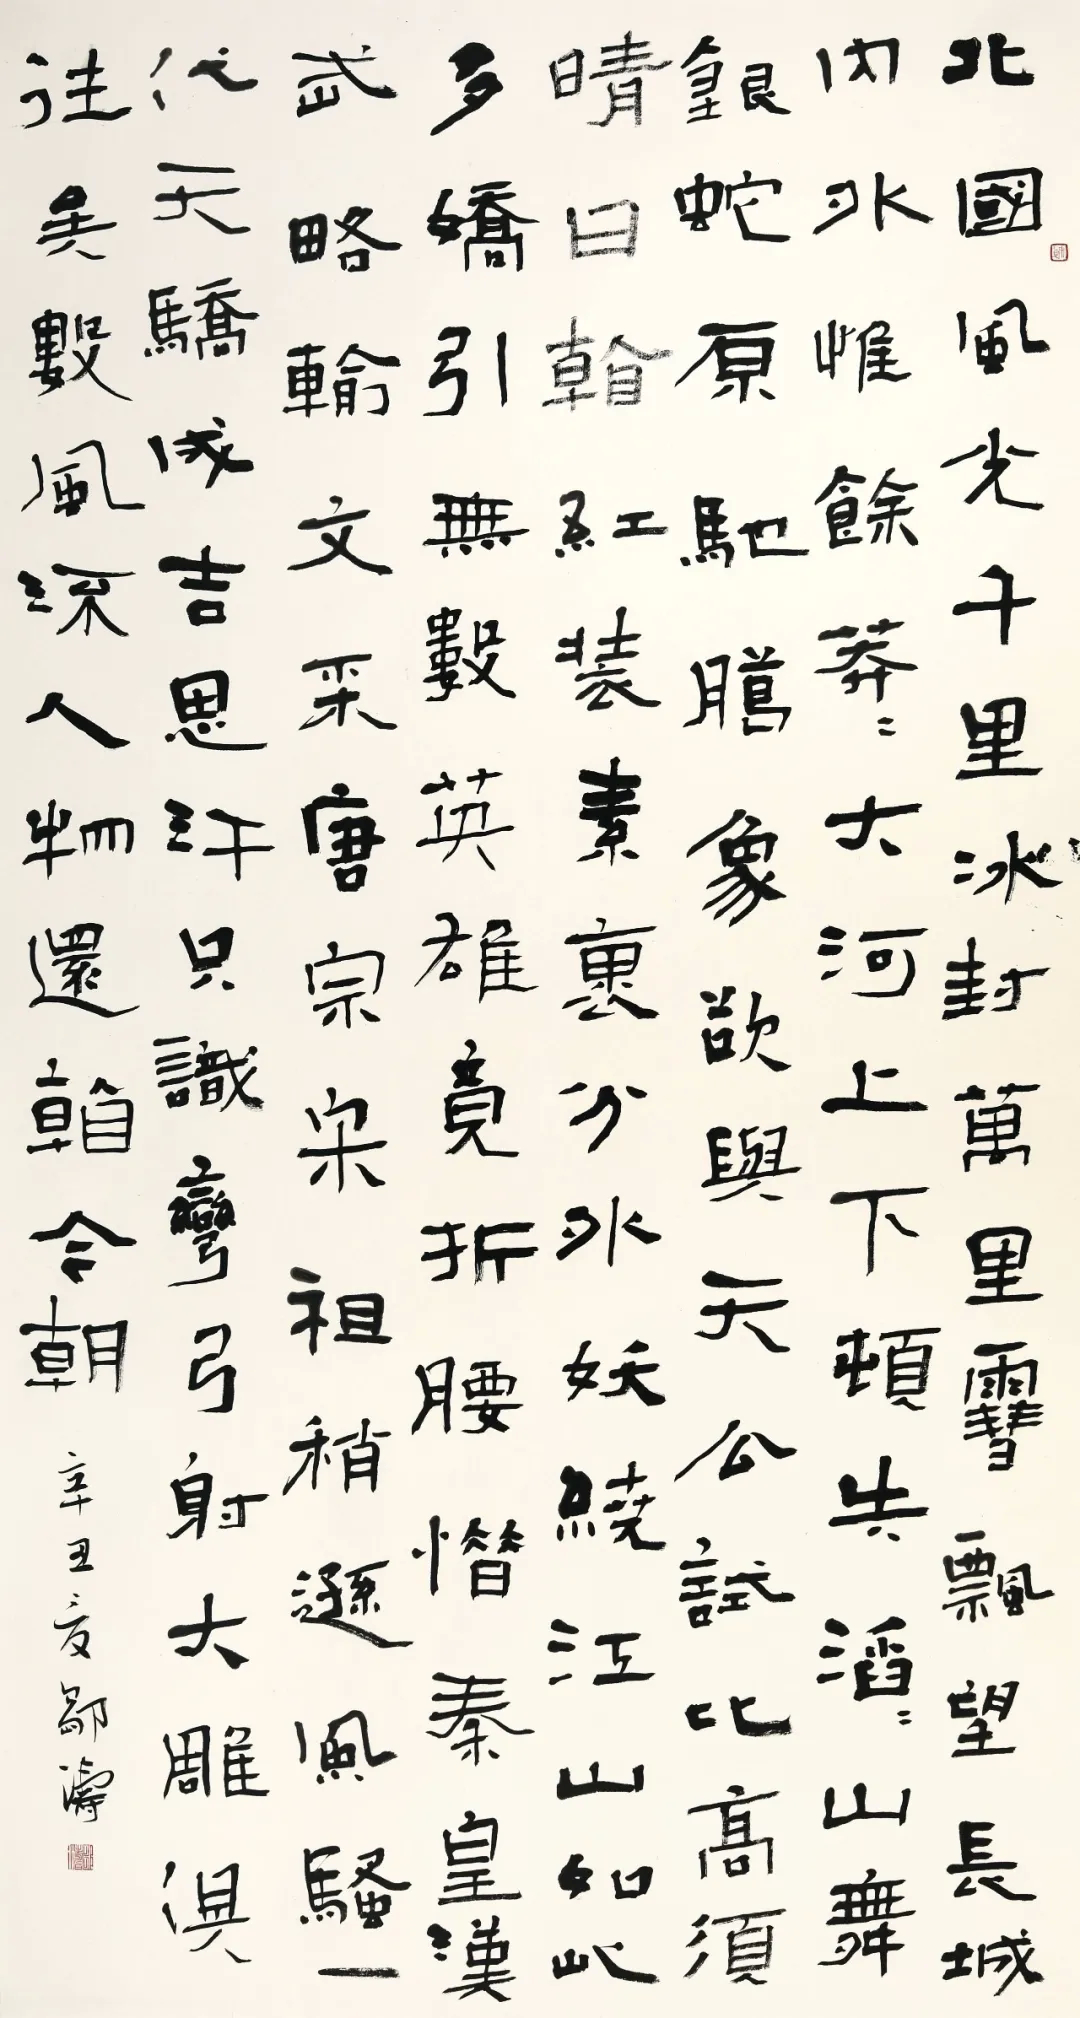 北國風光千里冰封萬里雪飄望長城
内外惟餘莽〻大河上下頓失滔〻山舞
銀蛇原馳臈象欲與天公試比高須
晴日看紅裝素裹分外妖繞江山如此
多嬌引無數英雄竟折腰惜秦皇漢
武略輸文采唐宗宋祖稍遜風騷一
代天驕成吉思汗只識彎弓射大雕俱
往矣數風流人物還看今朝
辛丑夏鄒濤